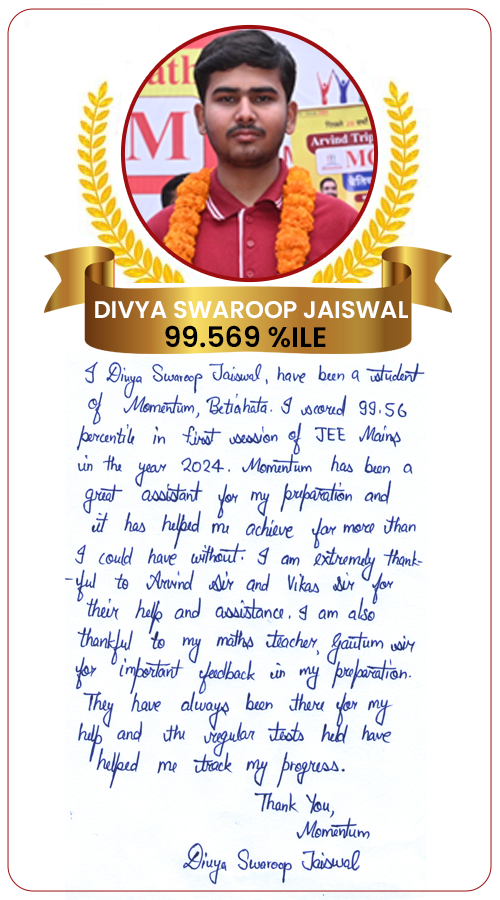 ath
M
Arvind Trip
MO
DIVYA SWAROOP JAISWAL
99.569 %ILE
I Divya Swaroop Jaiswal, have been a student
of Momentum, Betiahata. I scored 99.56
percentile in first session of JEE Mains
in the year 2024. Momentum has been a
great assistant for my preparation and
it has helped me achieve far more than
I could have without. I am extremely thank-
-ful to Arvind sir and Vikas sir for
their help and assistance. I am also
thankful to my maths teacher, Gautum sir
for important feedback in my preparation.
They have always been there for my
help and the regular tests held have
helped me track my progress.
Thank You,
Momentum
Divya Swaroop Jaiswal